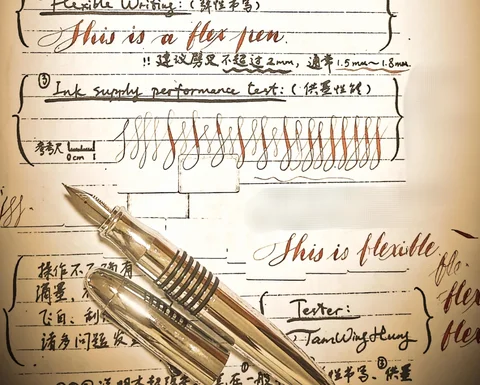 Flexible Writing: (弹性书写)
This is a flex pen.
!! 建议劈足不超过2mm, 通常1.5mm~1.8mm.
③
Ink supply performance test: (供墨性能)
参考尺
0cm 1
This is flexible
fle
flex
flex
操作不 有
漏墨,
飞白,
诸多问题发
Tester:
TamWingHung
性书写, ③供墨